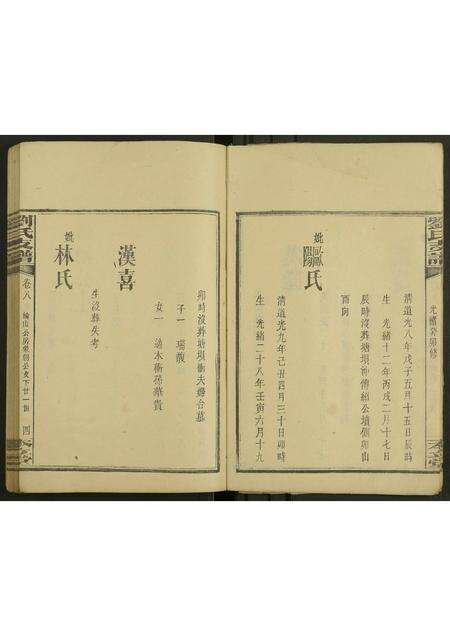 劉氏支譜
光緒癸卯修
清道光八年戊子五月十五日辰時
生 光緒十二年丙戌二月十七日
辰時沒葬塘垻沖傅組公墳側卯山
酉向
妣歐陽氏
清道光九年己丑四月三十日卯時
生 光緒二十八年壬寅六月十九
卯時沒葬塘垻衝夫塋合墓
子一 瑞馥
女一 適水衝孫華貴
漢喜
生沒葬失考
妣林氏
劉氏支譜
卷八
四